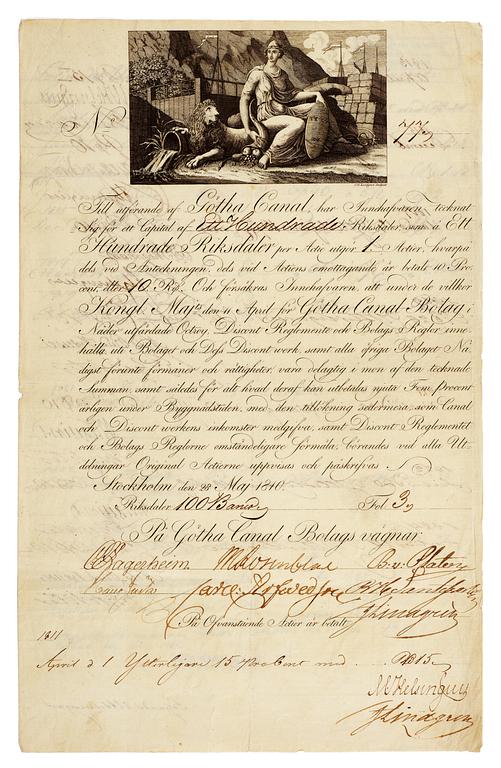 No 77,
Till utförande af Götha Canal, har Innehafvaren tecknat
Sig för ett Capital af Ett Hundrade Riksdaler, som à Ett
Hundrade Riksdaler per Actie utgör 1 Actier, hvarpå
dels vid Anteckningen, dels vid Actiens emottagande är betalt 10 Pro-
cent, eller 10 Rd. Och försäkras Innehafvaren, att under de villkor
Kongl. Maj:t den 11 April för Götha Canal Bolag i
Nåder utfärdade Octroy, Discont Reglemente och Bolags Regler inne-
hålla, uti Bolaget och Dess Discont werk, samt alla öfriga Bolaget Nå-
digst förunte förmåner och rättigheter, vara delagtig i mon af den tecknade
Summan, samt således för alt hvad deraf kan utbetalas njuta Fem procent
årligen under Byggnadstiden, med den tillökning sedermera, som Canal
och Discont werkens inkomster medgifva, samt Discont Reglementet
och Bolags Reglorne omständeligare förmäla, börandes vid alla Ut-
delningar Original Actierne uppvisas och påskrifvas.
Stockholm den 28 Maj 1810.
Riksdaler 100 Banco, Fol 3,
På Götha Canal Bolags vägnar.
Lagerheim M Rosenblad B. v. Platen
J Lindgren
På Ofvanstående Actier är betalt
1811
April d 1 Ytterligare 15 Procent med Rd 15,
M Helsingius
J Lindgren